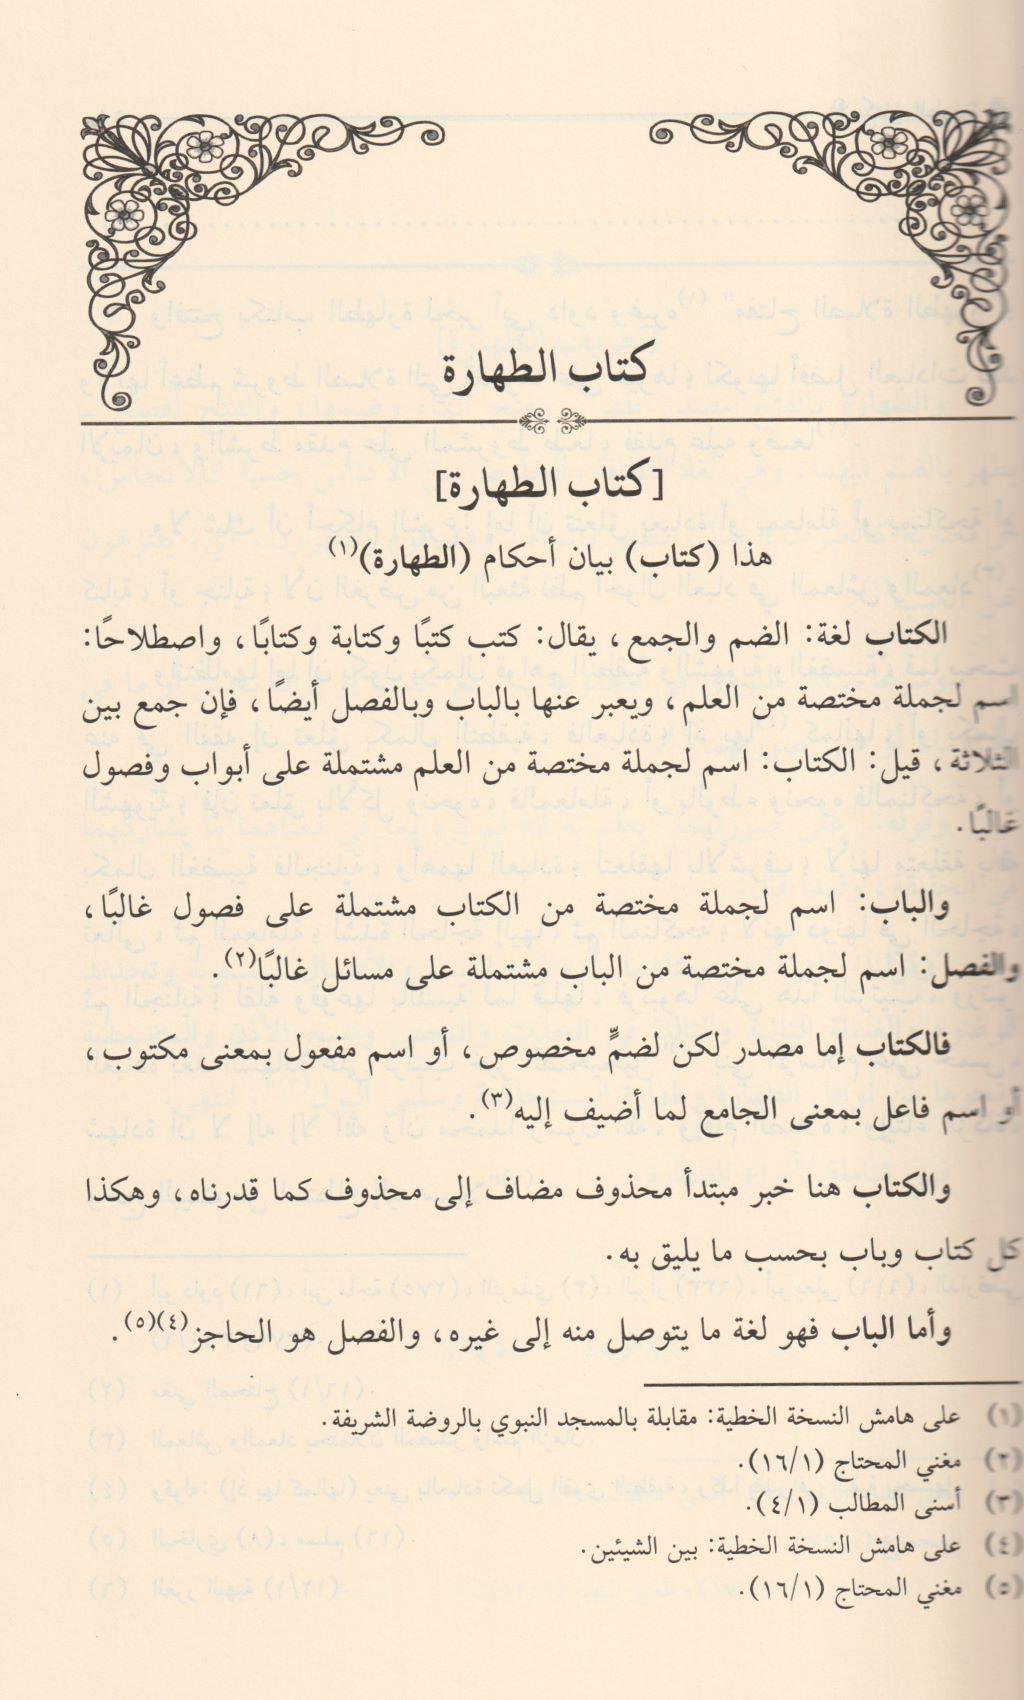 كتاب الطهارة
[كتاب الطهارة]
هذا (كتاب) بيان أحكام (الطهارة)(١)
الكتاب لغة: الضم والجمع، يقال: كتب كتبًا وكتابة وكتابًا، واصطلاحًا:
اسم لجملة مختصة من العلم، ويعبر عنها بالباب وبالفصل أيضًا، فإن جمع بين
الثلاثة، قيل: الكتاب: اسم لجملة مختصة من العلم مشتملة على أبواب وفصول
غالبًا.
والباب: اسم لجملة مختصة من الكتاب مشتملة على فصول غالبًا،
والفصل: اسم لجملة مختصة من الباب مشتملة على مسائل غالبًا(٢).
فالكتاب إما مصدر لكن لضمٍّ مخصوص، أو اسم مفعول بمعنى مكتوب،
أو اسم فاعل بمعنى الجامع لما أضيف إليه(٣).
والكتاب هنا خبر مبتدأ محذوف مضاف إلى محذوف كما قدرناه، وهكذا
كل كتاب وباب بحسب ما يليق به.
وأما الباب فهو لغة ما يتوصل منه إلى غيره، والفصل هو الحاجز(٤)(٥).
(١) على هامش النسخة الخطية: مقابلة بالمسجد النبوي بالروضة الشريفة.
(٢) مغني المحتاج (١٦/١).
(٣) أسنى المطالب (٤/١).
(٤) على هامش النسخة الخطية: بين الشيئين.
(٥) مغني المحتاج (١٦/١).